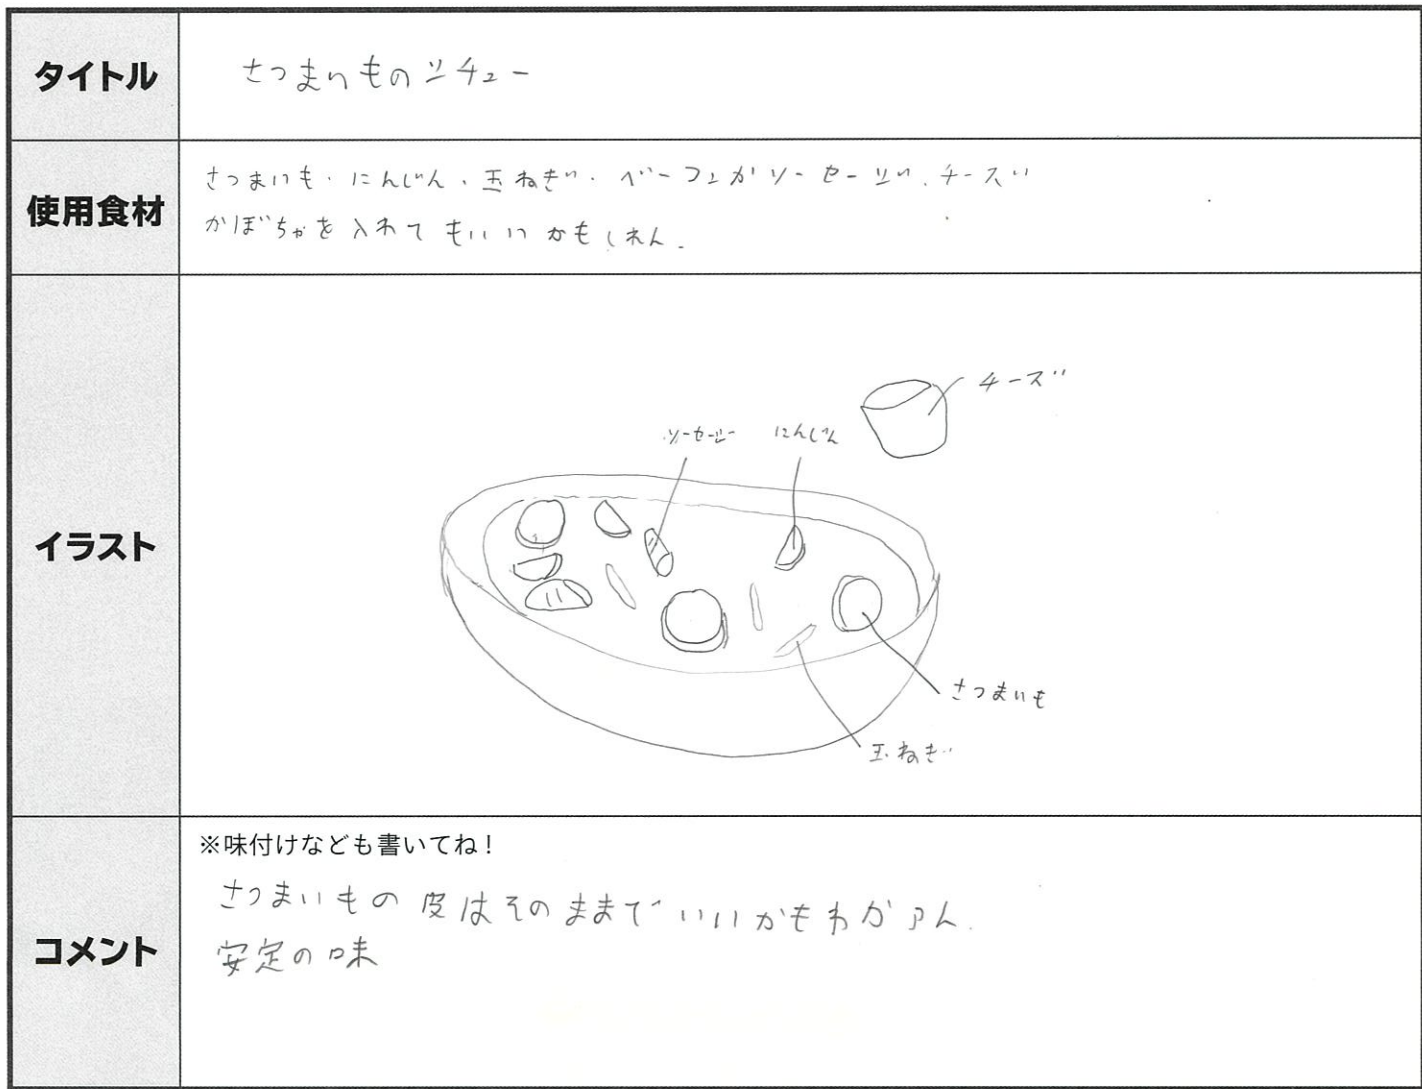 タイトル
さつまいものシチュー
使用食材
さつまいも・にんじん、玉ねぎ・ベーコンかソーセージ、チーズ
かぼちゃを入れてもいいかもしれん.
イラスト
チーズ
ソーセージ
にんじん
さつまいも
玉ねぎ
コメント
※味付けなども書いてね！
さつまいもの皮はそのままでいいかもわからん.
安定の味